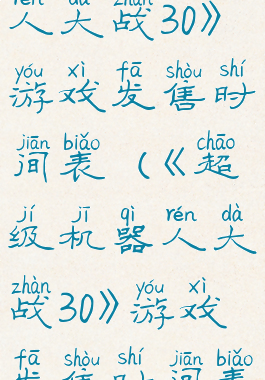 rén dà zhàn
人大战30》
yóu xì fā shòu shí
游戏发售时
jiān biǎo chāo
间表 (《超
jí jī qì rén dà
级机器人大
zhàn yóu xì
战30》游戏
fā shòu shí jiān biǎo
发售时间表